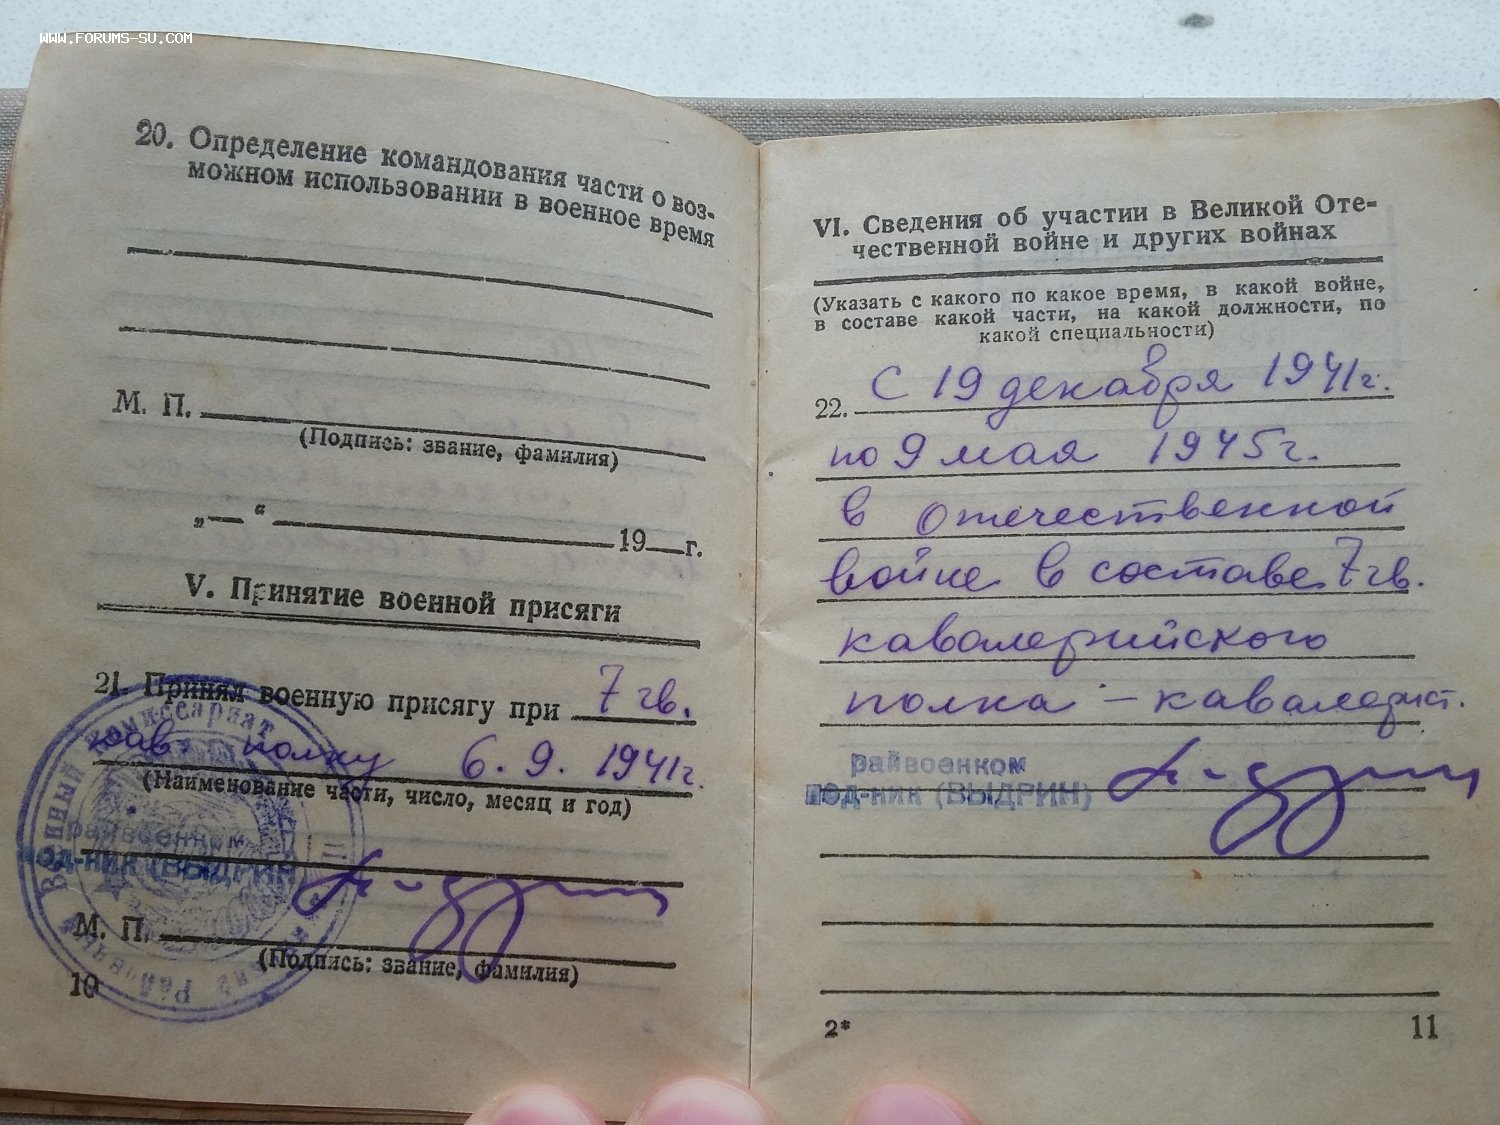 WWW.FORUMS-SU.COM
20. Определение командования части о воз-
можном использовании в военное время
М. П.
(Подпись: звание, фамилия)
„— “ 19 г.
V. Принятие военной присяги
21. Принял военную присягу при 7 гв.
кав. полку 6.9. 1941г.
(Наименование части, число, месяц и год)
райвоенком
под-ник (ВЫДРИН)
М. П.
(Подпись: звание, фамилия)
Военный Комиссариат
10
VI. Сведения об участии в Великой Оте-
чественной войне и других войнах
(Указать с какого по какое время, в какой войне,
в составе какой части, на какой должности, по
какой специальности)
22. С 19 декабря 1941г.
по 9 мая 1945г.
в Отечественной
войне в составе 7 гв.
кавалерийского
полка - кавалерист.
райвоенком
под-ник (ВЫДРИН)
2*
11